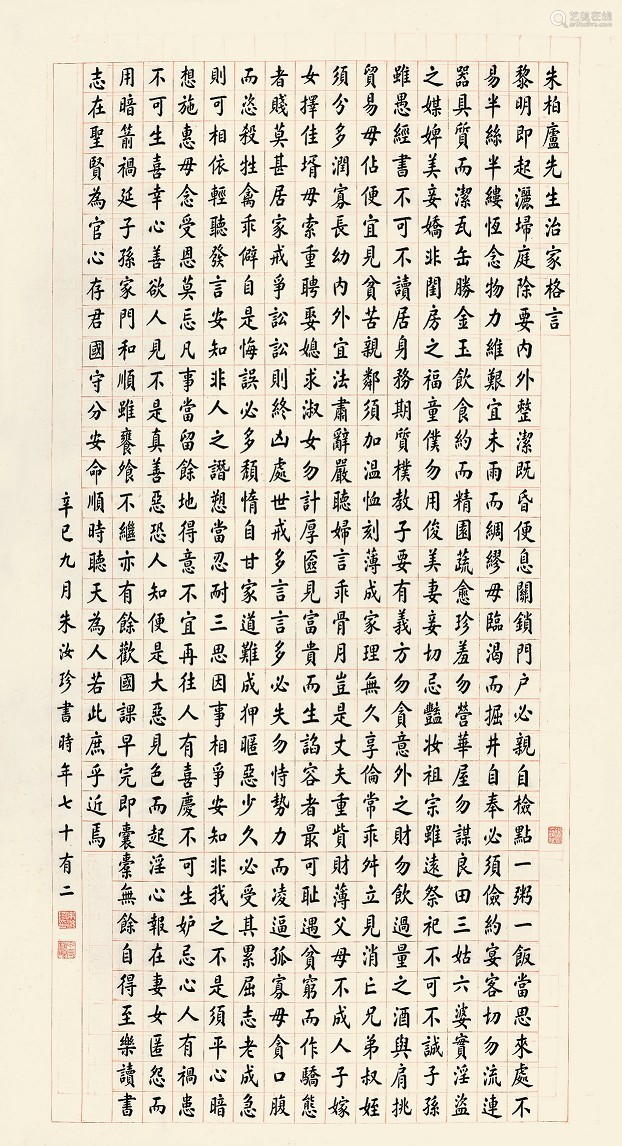 朱柏廬先生治家格言
黎明即起灑埽庭除要內外整潔既昏便息關鎖門户必親自檢點一粥一飯當思來處不
易半絲半縷恆念物力維艱宜未雨而綢繆毋臨渴而掘井自奉必須儉約宴客切勿流連
器具質而潔瓦缶勝金玉飲食約而精園蔬愈珍羞勿營華屋勿謀良田三姑六婆實淫盜
之媒婢美妾嬌非閨房之福童僕勿用俊美妻妾切忌豔妝祖宗雖遠祭祀不可不誠子孫
雖愚經書不可不讀居身務期質樸教子要有義方勿貪意外之財勿飲過量之酒與肩挑
貿易毋佔便宜見貧苦親鄰須加温恤刻薄成家理無久享倫常乖舛立見消亡兄弟叔姪
須分多潤寡長幼內外宜法肅辭嚴聽婦言乖骨月豈是丈夫重貲財薄父母不成人子嫁
女擇佳壻毋索重聘娶媳求淑女勿計厚匳見富貴而生諂容者最可恥遇貧窮而作驕態
者賤莫甚居家戒爭訟訟則終凶處世戒多言言多必失勿恃勢力而凌逼孤寡毋貪口腹
而恣殺牲禽乖僻自是悔誤必多頹惰自甘家道難成狎暱惡少久必受其累屈志老成急
則可相依輕聽發言安知非人之譖愬當忍耐三思因事相爭安知非我之不是須平心暗
想施惠毋念受恩莫忘凡事當留餘地得意不宜再往人有喜慶不可生妒忌心人有禍患
不可生喜幸心善欲人見不是真善惡恐人知便是大惡見色而起淫心報在妻女匿怨而
用暗箭禍延子孫家門和順雖饔飧不繼亦有餘歡國課早完即囊橐無餘自得至樂讀書
志在聖賢為官心存君國守分安命順時聽天為人若此庶乎近焉
辛巳九月朱汝珍書時年七十有二
艺狐在线